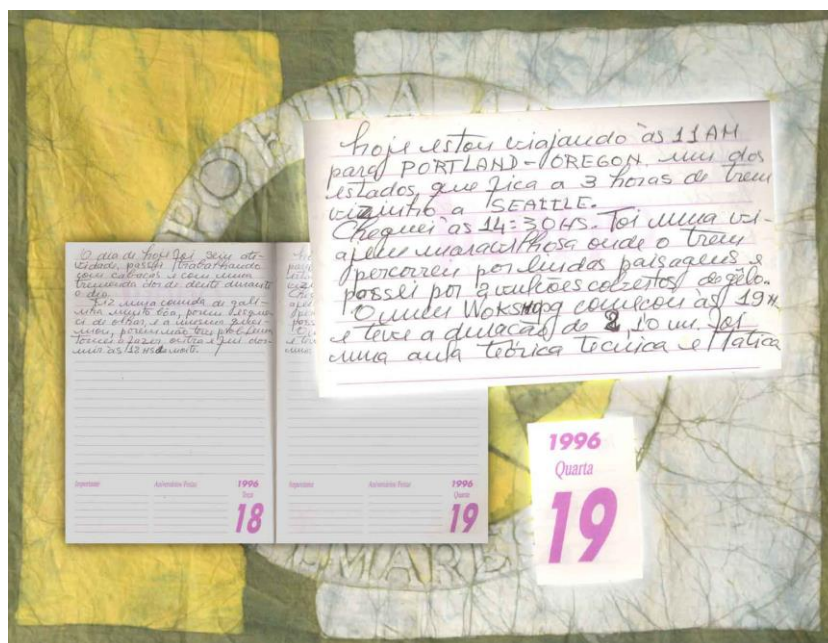 hoje estou viajando às 11AM
para PORTLAND-OREGON um dos
estados, que fica a 3 horas de trem
vizinho a SEATTLE.
Cheguei às 14:30HS. Foi uma vi-
ajem maravilhosa onde o trem
percorreu por lindas paisagens e
passei por 2 vulcões cobertos de gêlo.
O meu WOKSHOG começou às 19H
e teve a duração de 2,10 m. foi
uma aula teórica tecnica e tatica
O dia de hoje foi sem ati-
vidade, passei trabalhando
com cabacas e com uma
tremenda dor de dente durante
o dia.
Fiz uma comida de gali-
nha muito boa, porem esque-
ci de olhar, e a mesma quei-
mou, porem não tive problema
tornei a fazer outra e fui dor-
mir às 12HS da noite.
Importante
Aniversários Festas
1996
Terça
18
Importante
Aniversários Festas
1996
Quarta
19
1996
Quarta
19